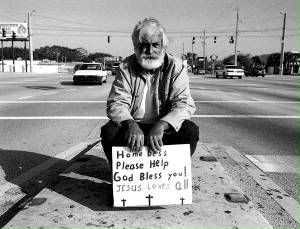 Homeless
Please Help
God Bless you!
JESUS Loves All